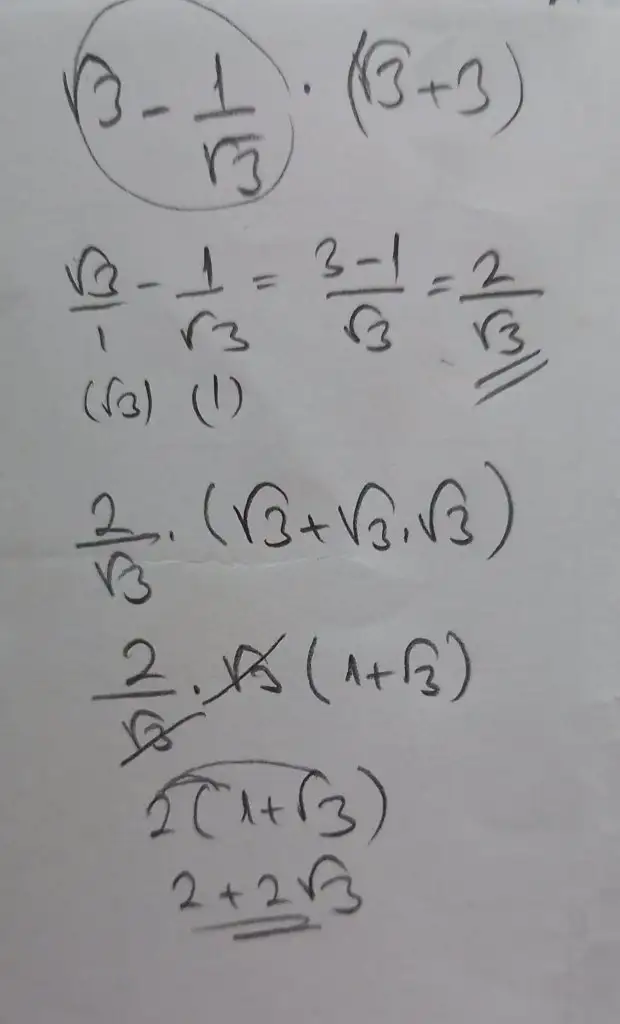 √3 - 1/√3 · (√3+3)
√3/1 - 1/√3 = 3-1/√3 = 2/√3
(√3) (1)
2/√3 · (√3+√3.√3)
2/√3 · √3 (1+√3)
2(1+√3)
2+2√3